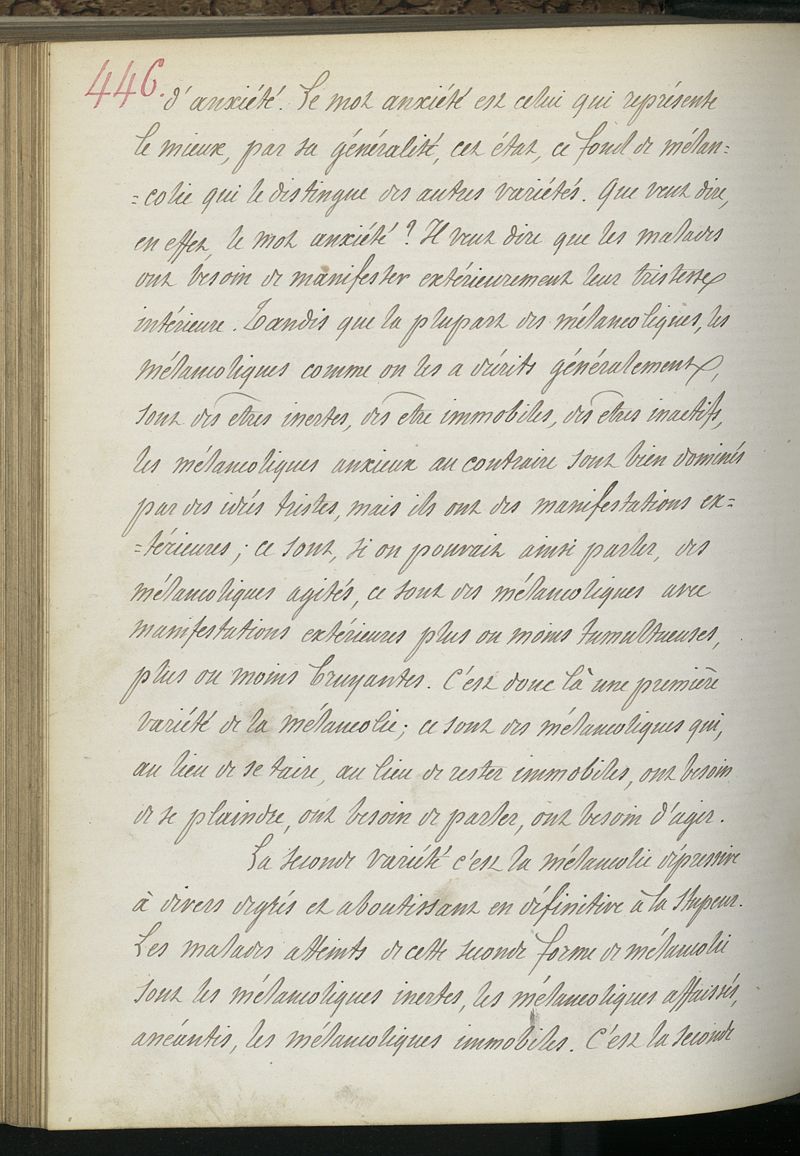 446.
d'anxiété. Le mot anxiété est celui qui représente
le mieux, par sa généralité, cet état, ce fond de mélan=
=colie qui le distingue des autres variétés. Que veut dire,
en effet, le mot anxiété ? Il veut dire que les malades
ont besoin de manifester extérieurement leur tristesse
intérieure. Tandis que la plupart des mélancoliques, les
mélancoliques comme on les a décrits généralement,
sont des êtres inertes, des être immobiles, des êtres inactifs,
les mélancoliques anxieux au contraire sont bien dominés
par des idées tristes, mais ils ont des manifestations ex=
=térieures ; ce sont, si on pouvait ainsi parler, des
mélancoliques agités, ce sont des mélancoliques avec
manifestations extérieures plus ou moins tumultueuses,
plus ou moins bruyantes. C'est donc là une première
variété de la mélancolie ; ce sont des mélancoliques qui,
au lieu de se taire, au lieu de rester immobiles, ont besoin
de se plaindre, ont besoin de parler, ont besoin d'agir.
La seconde variété c'est la mélancolie dépressive
à divers degrés et aboutissant en définitive à la stupeur.
Les malades atteints de cette seconde forme de mélancolie
sont les mélancoliques inertes, les mélancoliques affaissés,
anéantis, les mélancoliques immobiles. C'est la seconde